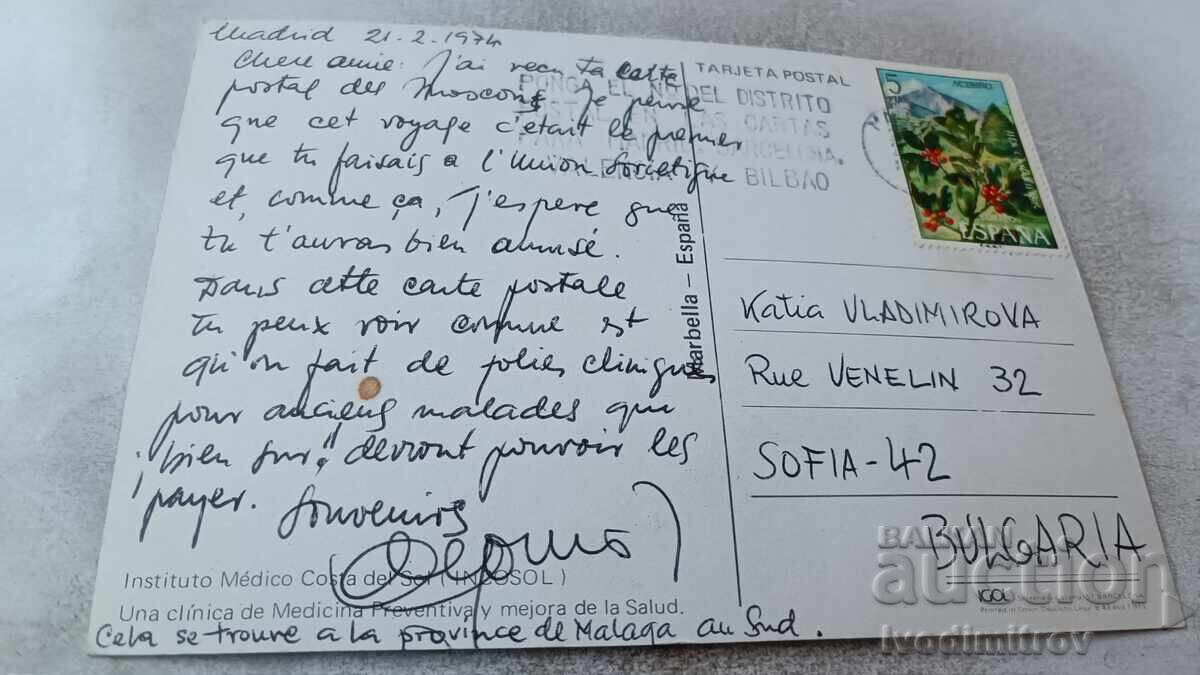 Madrid 21-2-1974
Chere amie: J'ai reçu ta carte
postal des Moscou. Je pense
que cet voyage c'etait le premier
que tu faisais a l'Union Sovietique
et, comme ça, J'espere que
tu t'auras bien amusé.
Dans cette carte postale
tu peux voir comme est
qu'on fait de jolies cliniques
pour anciens malades que
"bien sur!" devront pouvoir les
payer. Souvenirs
Instituto Médico Costa del Sol (INCOSOL)
Una clínica de Medicina Preventiva y mejora de la Salud.
Cela se trouve a la province de Malaga au Sud.
Marbella – España
TARJETA POSTAL
PONGA EL Nº DEL DISTRITO
POSTAL EN LAS CARTAS
PARA MADRID, BARCELONA,
VALENCIA BILBAO
5
PTAS
ACEBIÑO
ESPAÑA
Katia VLADIMIROVA
Rue VENELIN 32
SOFIA-42
BULGARIA
IGOL
BALKAN
auction
Ivodimitrov